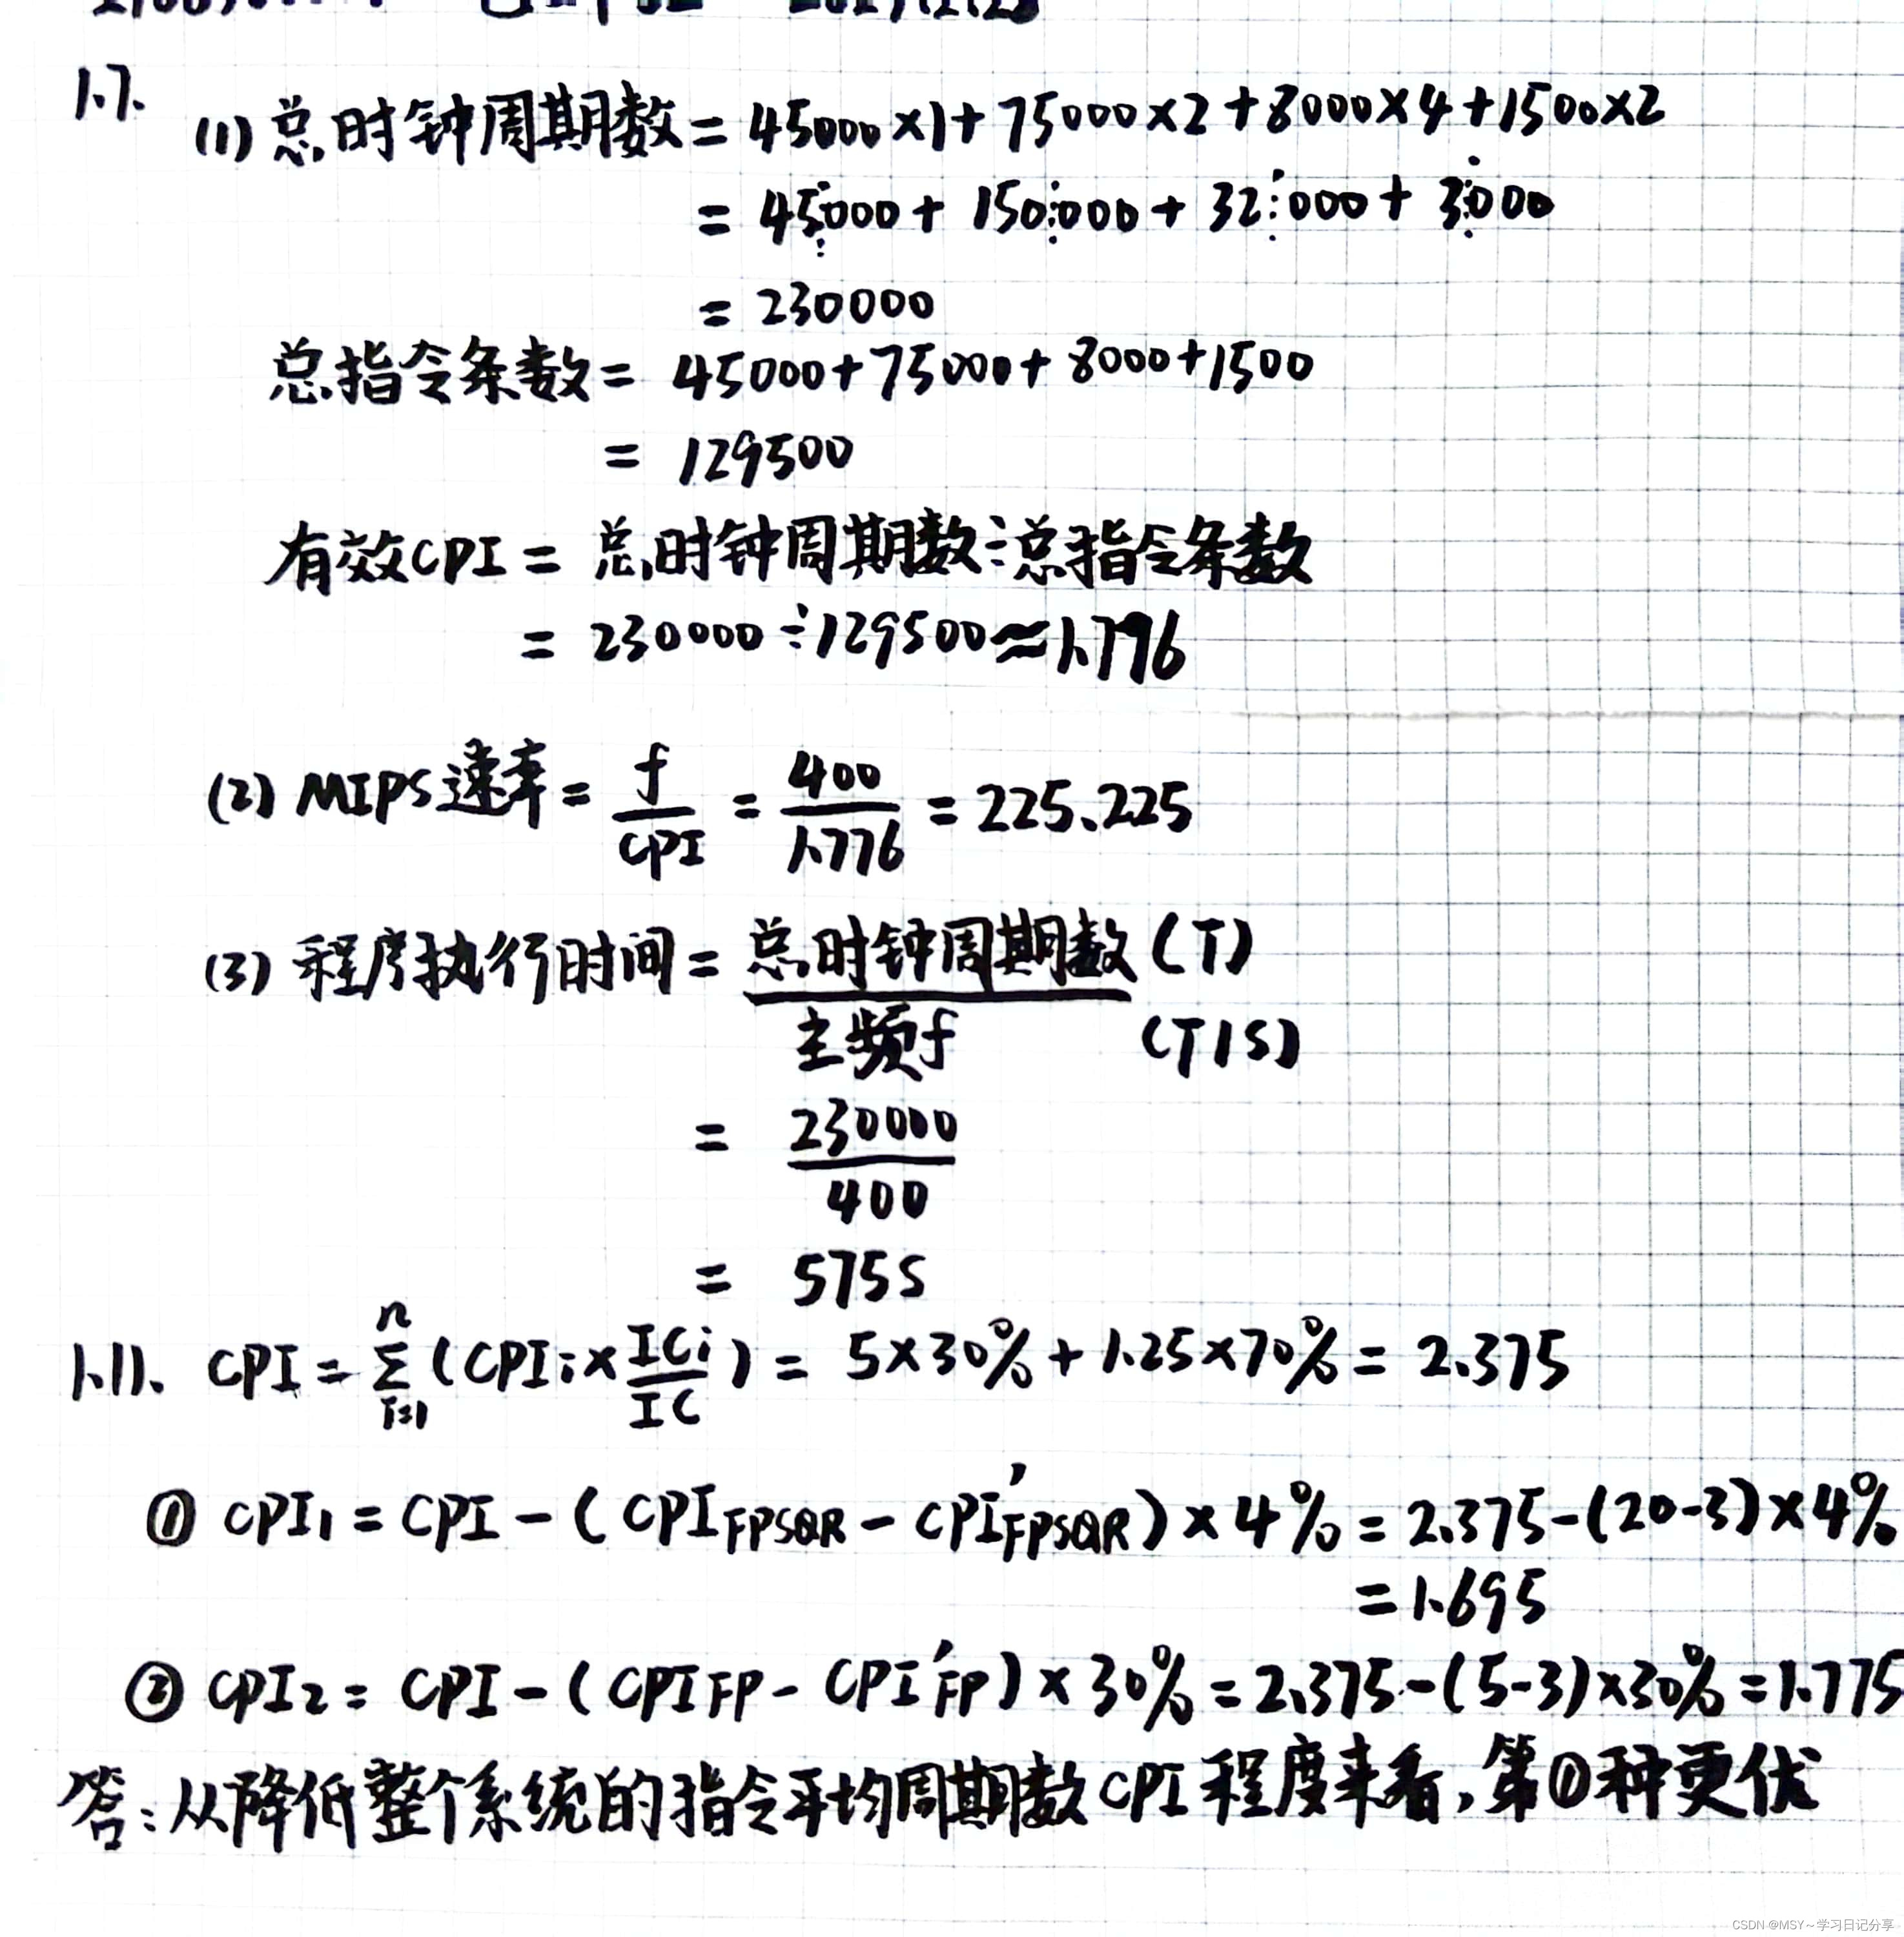 1.7.
(1) 总时钟周期数 = 45000×1+75000×2+8000×4+1500×2
= 45000+150000+32000+3000
= 230000
总指令条数 = 45000+75000+8000+1500
= 129500
有效CPI = 总时钟周期数÷总指令条数
= 230000÷129500≈1.776
(2) MIPS速率 = f/CPI = 400/1.776 = 225.225
(3) 程序执行时间 = 总时钟周期数(T)/主频f (T/S)
= 230000/400
= 575s
1.11. CPI = Σ(i=1, n)(CPIi×ICi/IC) = 5×30%+1.25×70% = 2.375
① CPI1 = CPI-(CPIFPSQR-CPI'FPSQR)×4% = 2.375-(20-3)×4%
= 1.695
② CPI2 = CPI-(CPIFP-CPI'FP)×30% = 2.375-(5-3)×30% = 1.775
答:从降低整个系统的指令平均周期数CPI程度来看,第①种更优
CSDN @MSY~学习日记分享